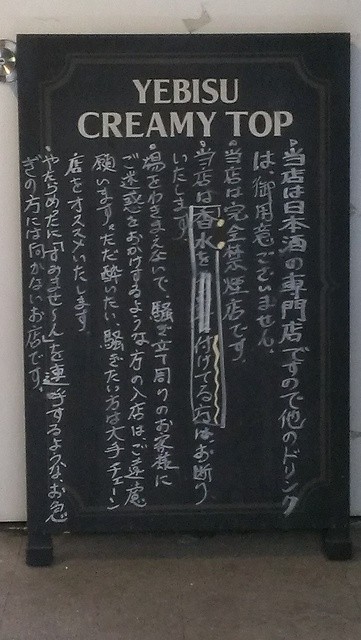 YEBISU
CREAMY TOP
・当店は日本酒の専門店ですので他のドリンク
は、御用意ございません。
・当店は完全禁煙店です。
・当店は香水を付けてる方はお断り
いたします。
・場をわきまえないで、騒ぎ立て周りのお客様に
ご迷惑をおかけするような方の入店はご遠慮
願います。ただ酔いたい、騒ぎたい方は大手チェーン
店をオススメいたします。
・やたらめったに「すみませ〜ん」を連呼するようなお急
ぎの方には向かないお店です。